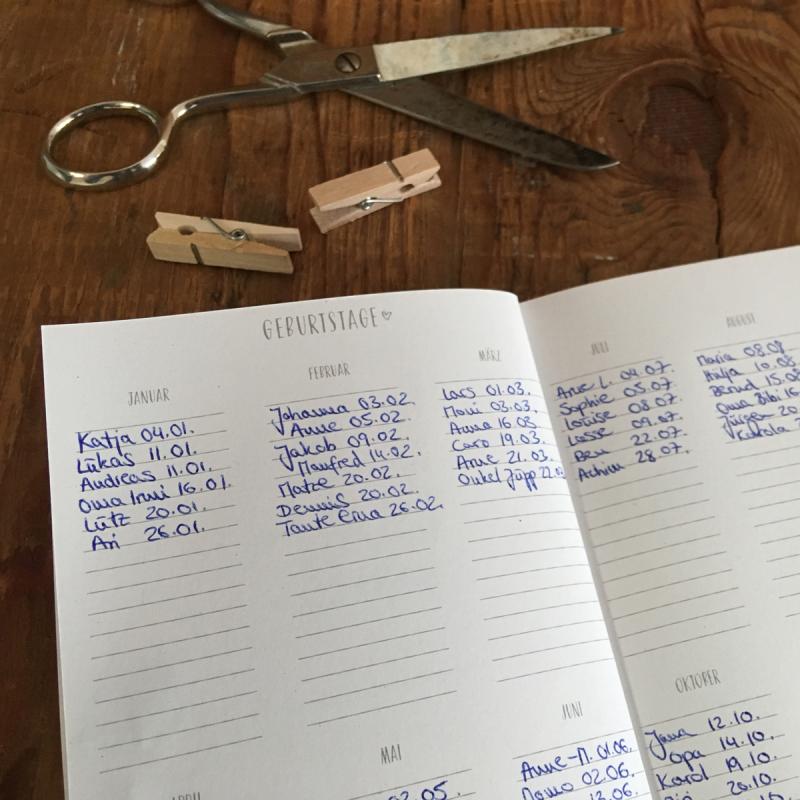 GEBURTSTAGE
JANUAR
Katja 04.01.
Lukas 11.01.
Andreas 11.01.
Oma Irmi 16.01.
Lutz 20.01.
Ari 26.01.
FEBRUAR
Johanna 03.02.
Anne 05.02.
Jakob 09.02.
Manfred 14.02.
Matze 20.02.
Dennis 20.02.
Tante Erna 26.02.
MÄRZ
Lars 01.03.
Moni 03.03.
Anna 16.03.
Caro 19.03.
Anne 21.03.
Onkel Jupp 22.03
APRIL
MAI
02.05.
JUNI
Anne-M. 01.06.
Mama 02.06.
12.06.
JULI
Ann L. 04.07.
Sophie 05.07.
Louise 08.07.
Lasse 09.07.
Ben 22.07.
Achim 28.07.
AUGUST
Maria 08.08
Hilja 10.08
Bernd 15.08
Oma Bibi 16
Jürgen 20
OKTOBER
Jana 12.10.
Opa 14.10.
Karol 19.10.
20.10.